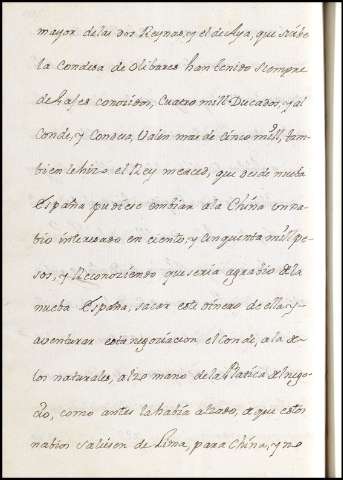 mayor de las dos Reynas, y el de Aya, que
la Condesa de Olibares han tenido siempre
de gajes conozidos, Cuatro mill Ducados, y al
Conde, y Condesa, Valen mas de cinco mill, tam-
bien le hizo el Rey merced, que desde nueba
España pudiese embiar a la China un na-
bio interesado en ciento, y cinquenta mill pe-
sos, y Reconoziendo que seria agrabio de la
nueba España, sacar este género de ella, y
aventurar esta negoziacion el Conde, a la de
los naturales, alzo mano de la Platica del nego-
zio, como antes la habia alzado, de que estos
nabios saliesen de Lima, para China, y no